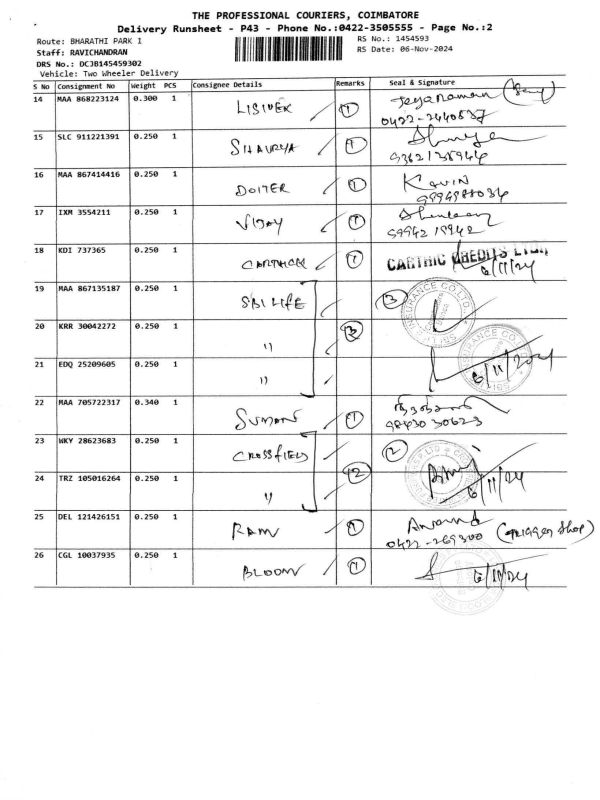 THE PROFESSIONAL COURIERS, COIMBATORE
Delivery Runsheet - P43 - Phone No.:0422-3505555 - Page No.:2
Route: BHARATHI PARK 1 RS No.: 1454593
Staff: RAVICHANDRAN RS Date: 06-Nov-2024
DRS No.: DCJB145459302
Vehicle: Two Wheeler Delivery
S No Consignment No Weight PCS Consignee Details Remarks Seal & Signature
14 MAA 868223124 0.300 1 1
15 SLC 911221391 0.250 1 SHAURYA 1
16 MAA 867414416 0.250 1 1 KAVIN
17 IXM 3554211 0.250 1 VIJAY 1
99942 19942
18 KDI 737365 0.250 1 1 CARTHIC CREDITS LTD.
6/11/24
19 MAA 867135187 0.250 1 SBI LIFE 3
INSURANCE CO.LTD.
20 KRR 30042272 0.250 1 " 3
21 EDQ 25209605 0.250 1 " 6/11/2024
22 MAA 705722317 0.340 1 SUMAN 1
98430 30623
23 WKY 28623683 0.250 1 CROSSFIELD 2
24 TRZ 105016264 0.250 1 " 2 6/11/24
25 DEL 121426151 0.250 1 RAM 1 Anand
0422-269300 (TRIGGER Shop)
26 CGL 10037935 0.250 1 BLOOM 1 6/11/24